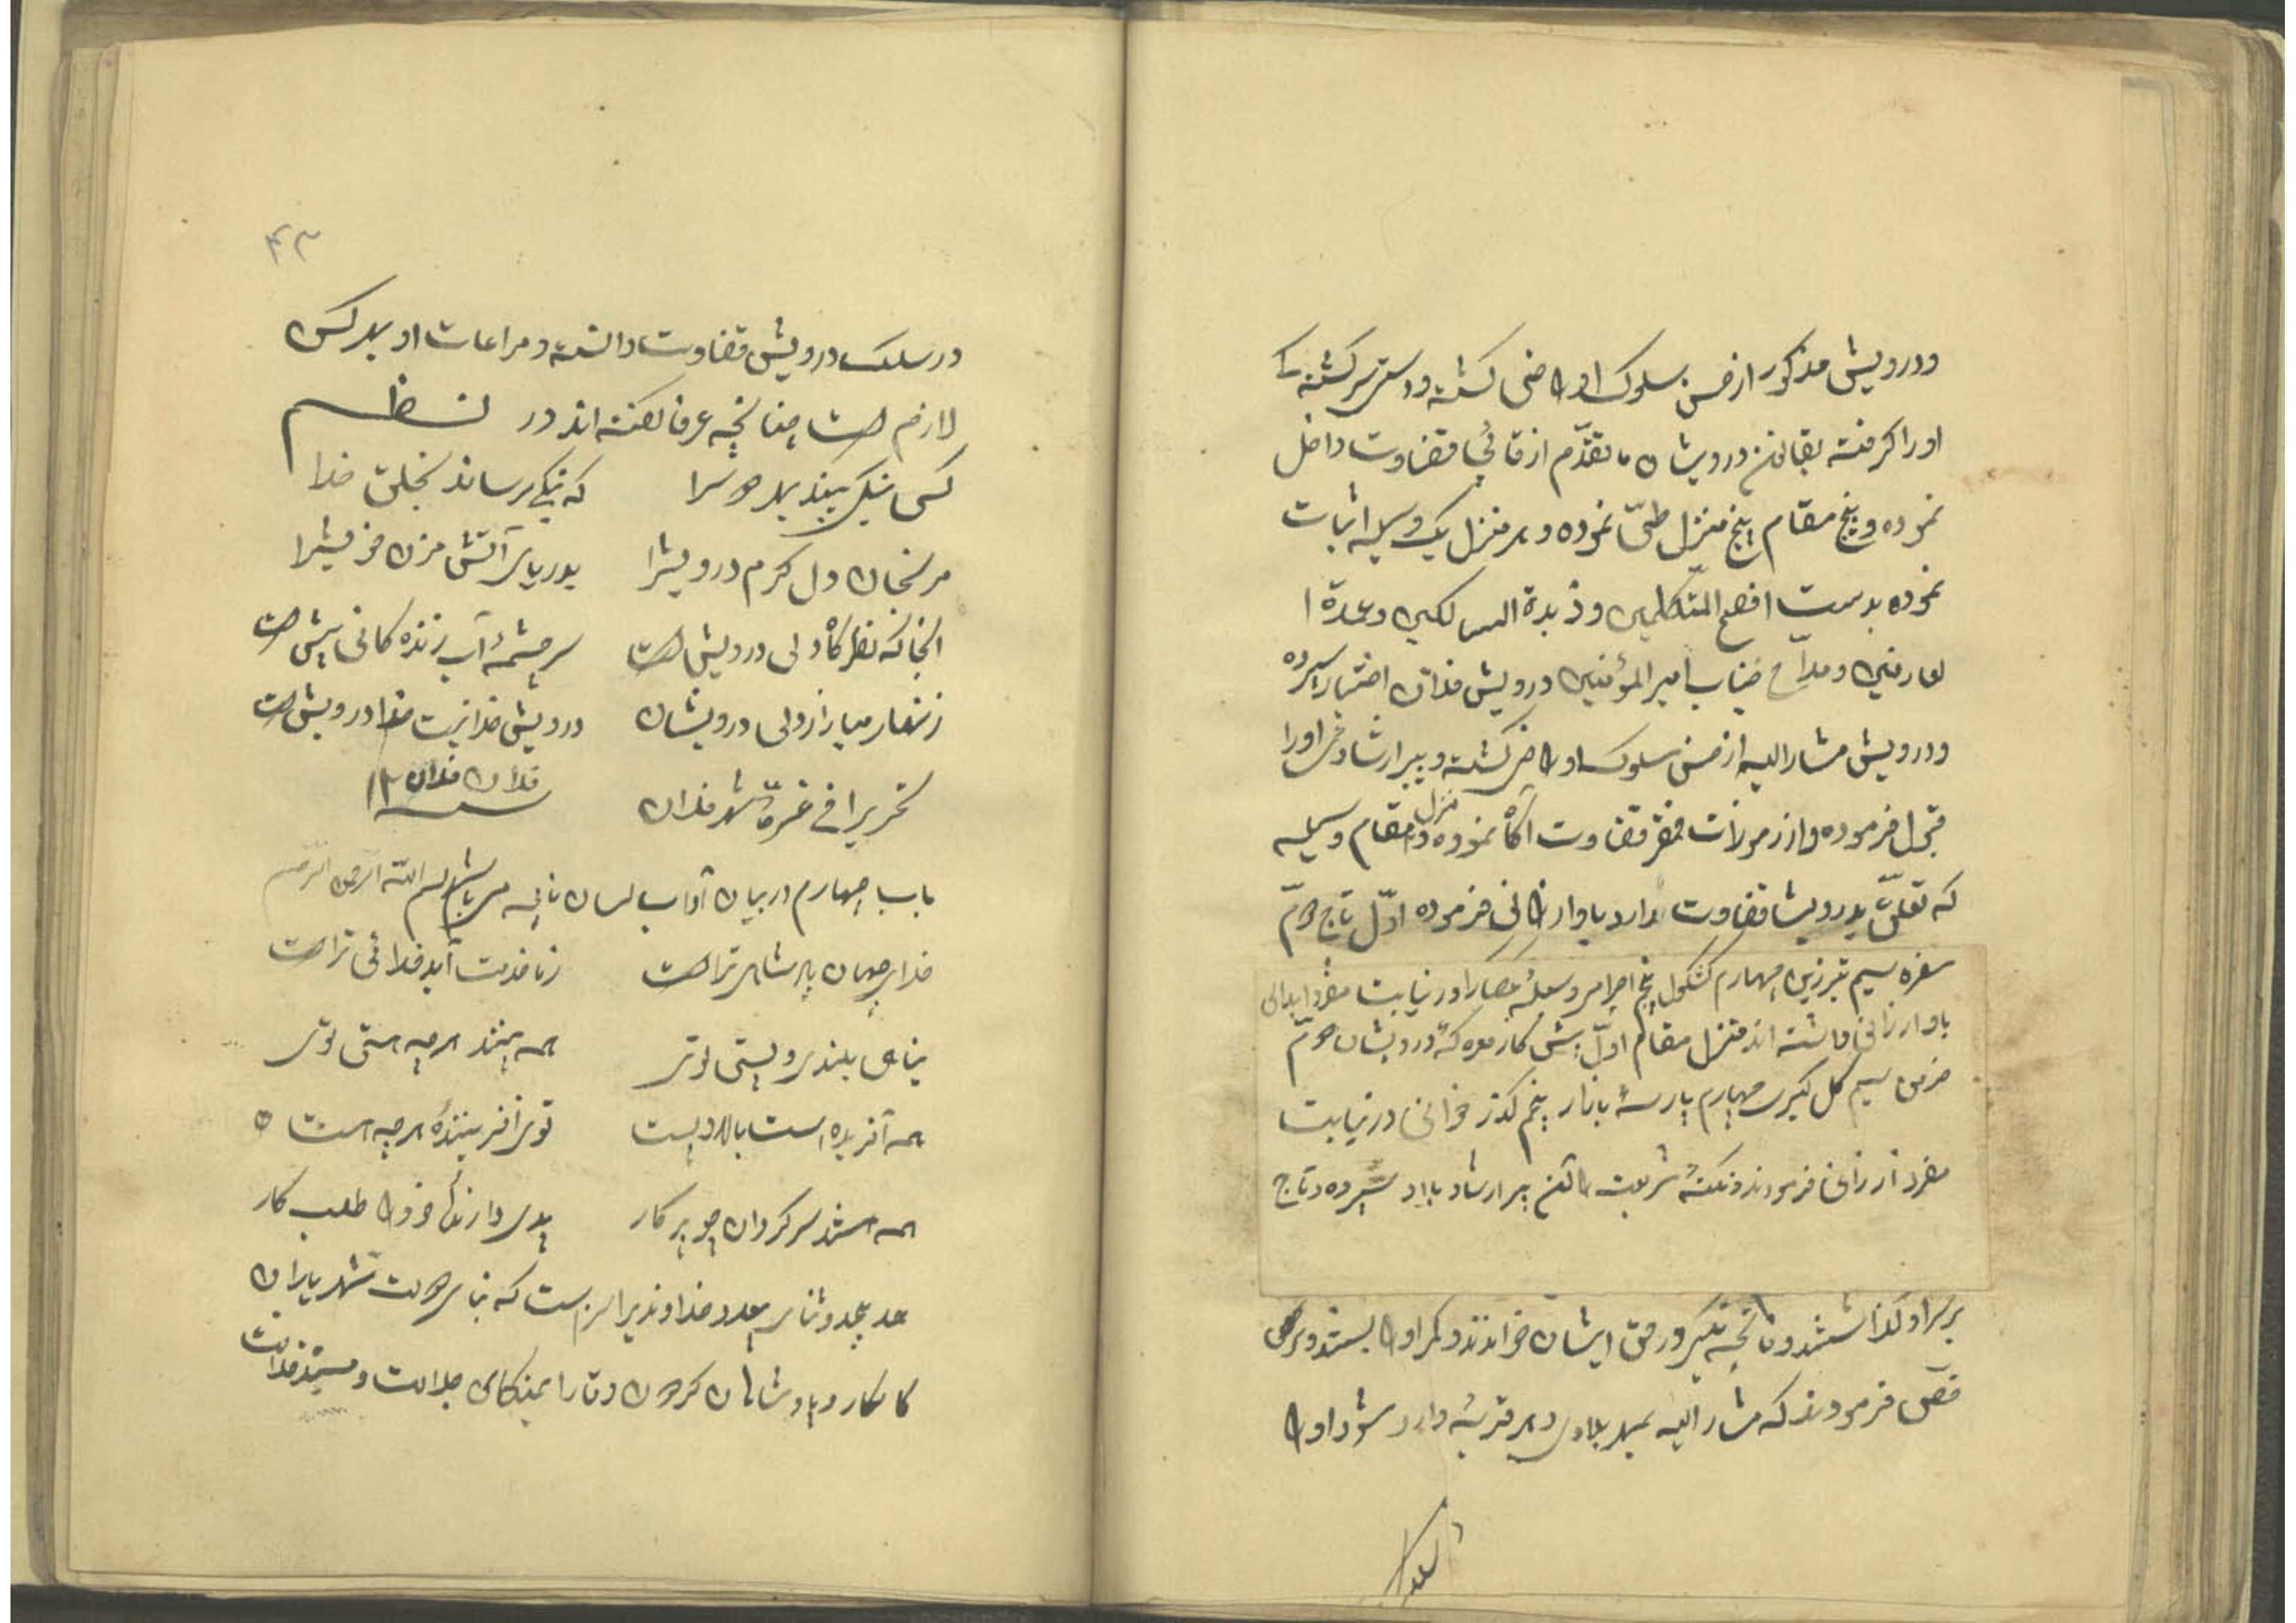 ودرویش مذکور از حسن سلوک او راضی گشته و دستی بر کشته
او را گرفته بقانون درویشان ما تقدّم از قائی قضاوت داخل
نموده و پنج مقام پنج منزل طیّ نموده و هر منزل یک وسیله اثبات
نموده بدست افصح المتکلمین و زبدة السالکین و عمدة ا
لعارفین و مدّاح جناب امیر المؤمنین درویش فلان اختیار سپرده
ودرویش مشار الیه از حسن سلوک او راضی گشته و پیر ارشادش او را
قبول فرموده و از رموزات فقر قضاوت آگاه نموده و منزل مقام وسیله
که تعلّق بدرویش قضاوت دارد باو ارزانی فرموده اوّل تاج دوّم
سفره سیم تبرزین چهارم کشکول پنجم در نیابت مفرد ابدالی
باو ارزانی داشته اند منزل مقام اوّل پیش کار معرکه درویشان دوّم
سیم گل گیری چهارم پارسهٔ بازار پنجم گذر خوانی در نیابت
مفرد ارزانی فرمودند و نکتهٔ شریعت پیر ارشاد باو سپرده و تاج
بر سر او گذاشتند و فاتحه تکبیر در حق ایشان خواندند و کمر او را بستند و مرخص
فرمودند که مشار الیه بهر بلادی و هر قریهٔ وارد شود او را
در سلک
۴۳
در سلک درویش قضاوت دانسته و مراعات او بهر کس
لازم است چنانچه عرفا گفته اند در نظم
کسی نیک بیند بهر دو سرا که نیکی رساند بخلق خدا
مرنجان دل گرم درویش را بدریای آتش مزن خویش را
انجا که نظرگاه دل درویش است سر چشمهٔ آب زنده گانی پیش است
زنهار میازار دل درویشان درویش خدا نیست خدا درویش است
تحریرا فی غرهٔ شهر فلان فلان فلان سنه ۱۲
باب چهارم در بیان آداب لسان بسم الله الرحمن الرحیم
خدایا جهان پادشاهی تراست ز ما خدمت آید خدائی تراست
پناه بلندی و پستی توئی همه نیستند هر چه هستی توئی
همه آفریده است بالا و پست توئی آفرینندهٔ هر چه هست
همه هستند سرگردان چو پرگار پدید آرنده خود را طلب کار
حمد بیحد و ثنای بیعدد خداوندیرا سزاست که بنای دولت شهریاران
کامکار و پادشاهان گردون وقار را بمنکای جلالت و